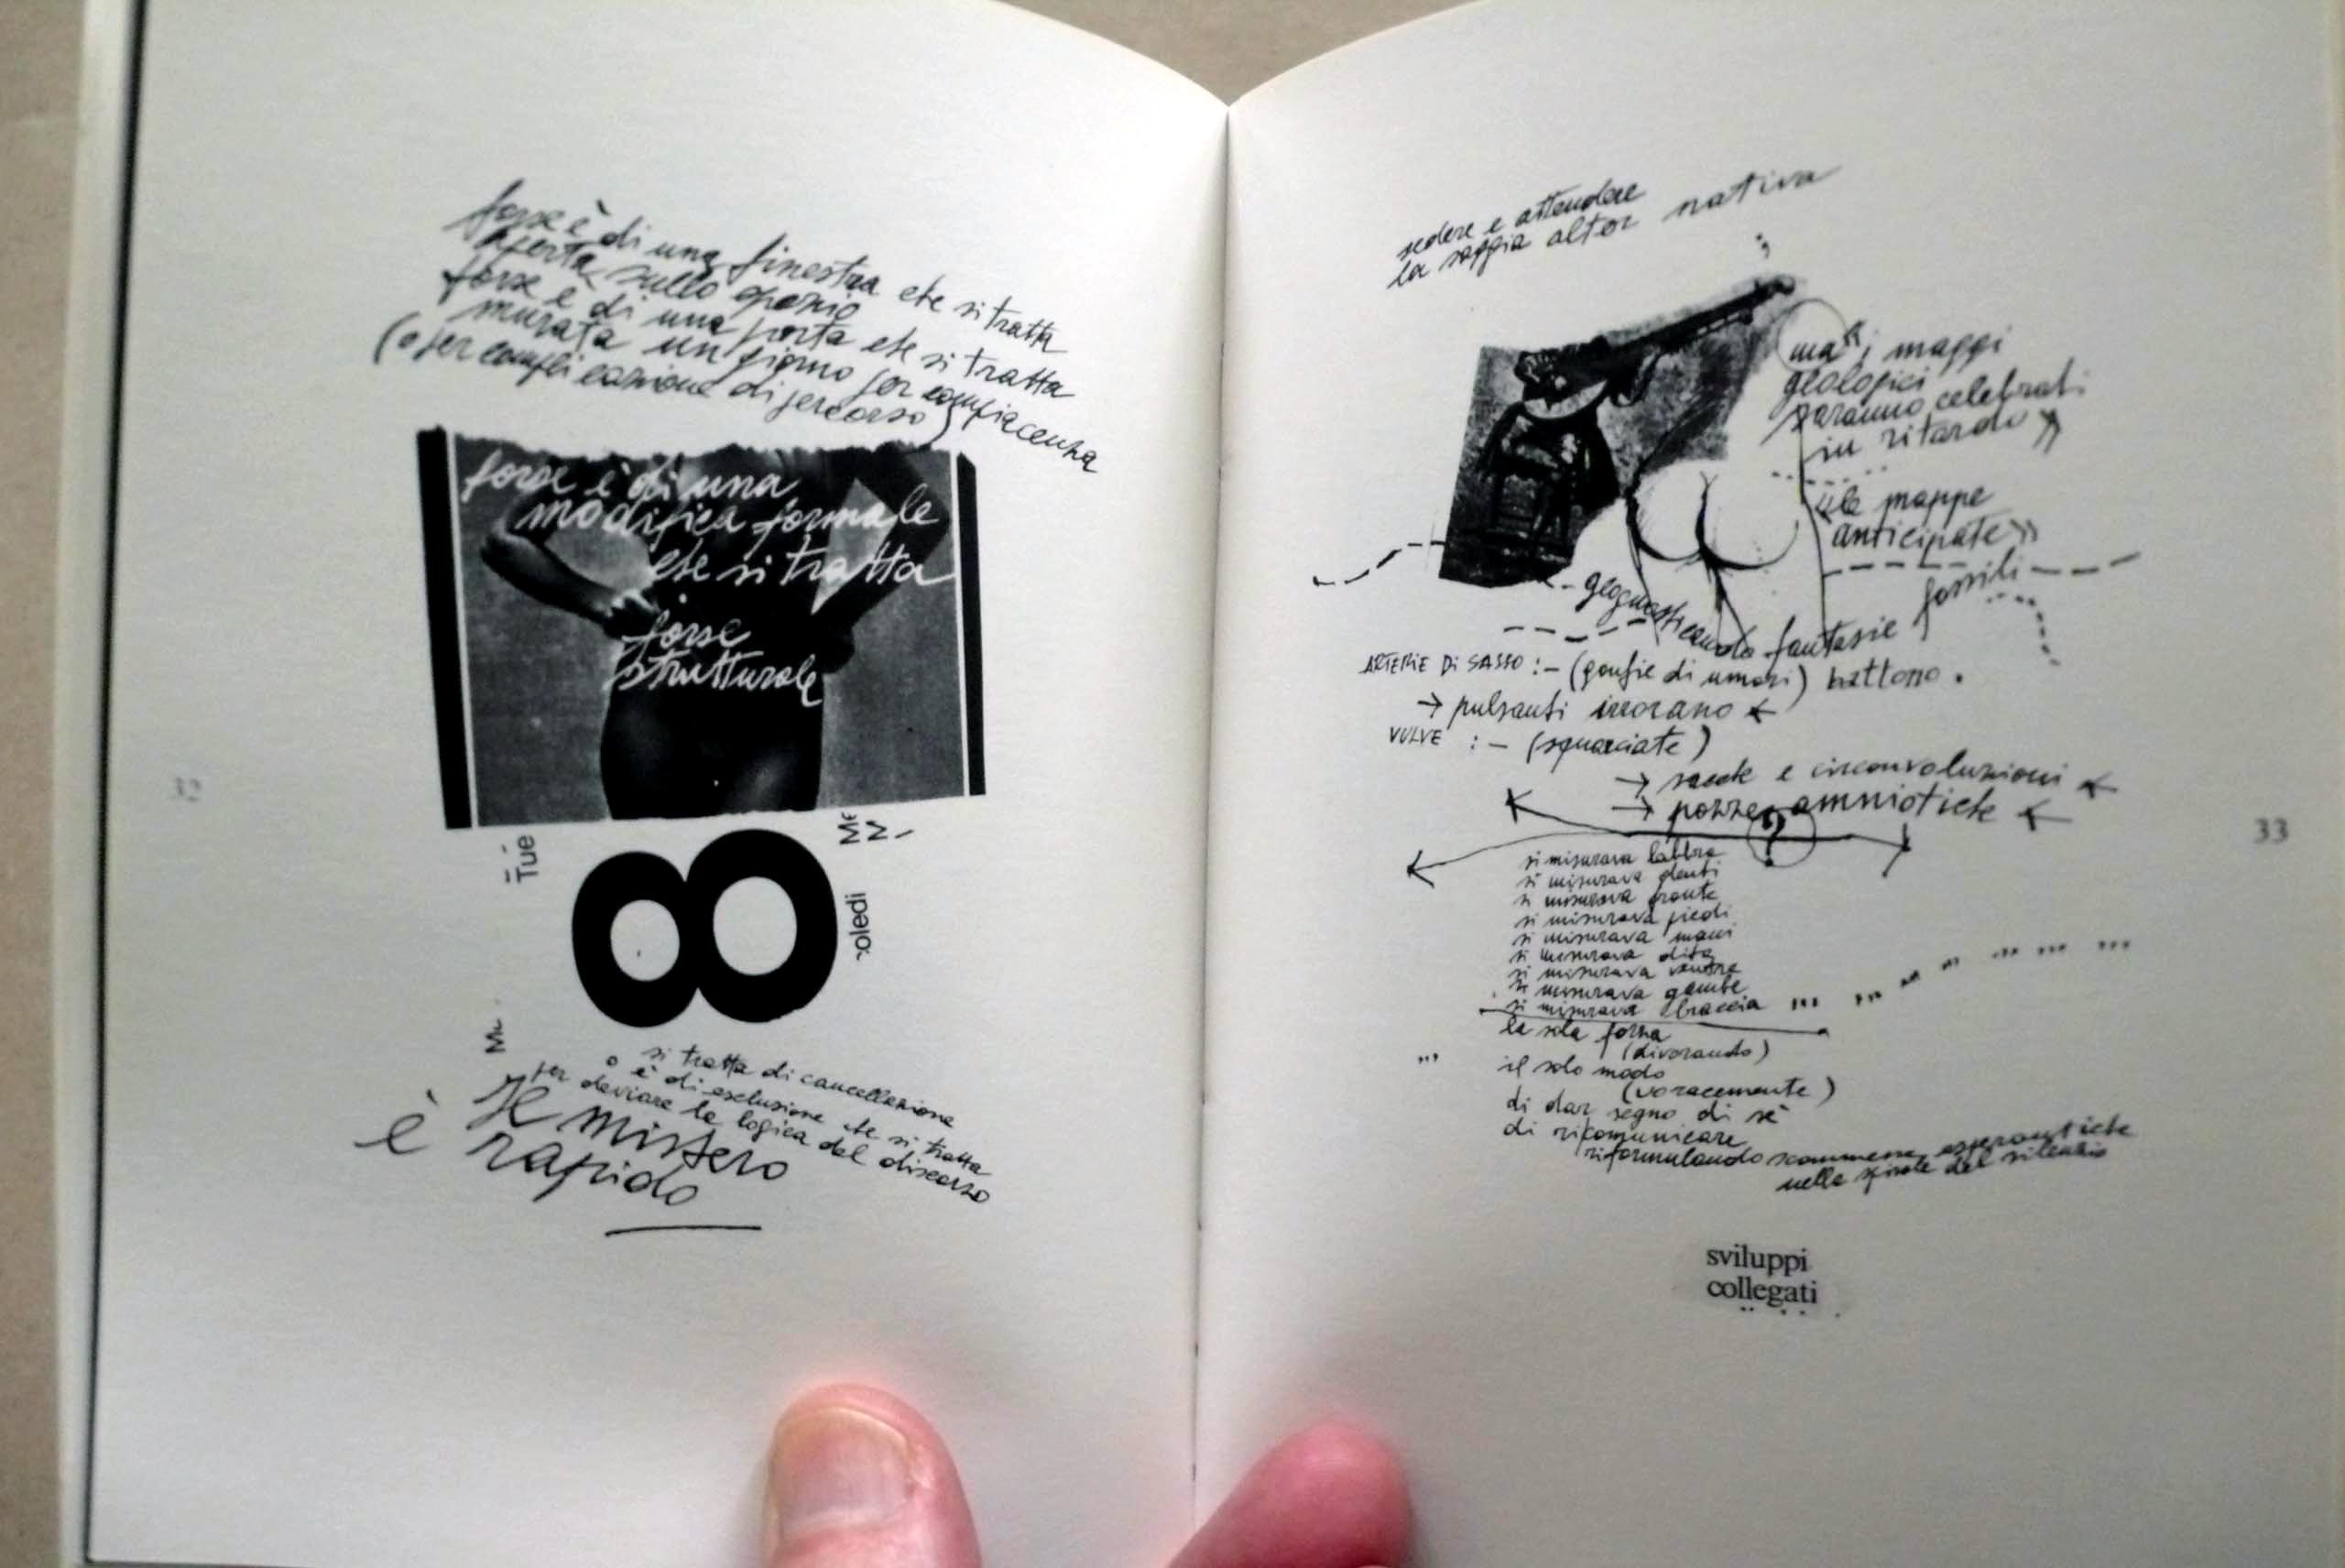 forse è di una finestra che si tratta
aperta sullo spazio
forse è di una porta che si tratta
murata un giorno per compiacenza
(o per complicazione di percorso)
forse è di una
modifica formale
che si tratta
forse
strutturale
Tue
Me
M
8
coledi
M
si tratta di cancellazione
o è di esclusione che si tratta
per deviare la logica del discorso
Il mistero
è rapido
32
sedere e attendere
la saggia alter nativa
ma « i maggi
geologici
saranno celebrati
in ritardo »
«le mappe
anticipate»
geognosticando fantasie fossili
ARTERIE DI SASSO :- (gonfie di umori) battono.
→ pulsanti irrorano ←
VULVE :- (squarciate)
→ sacche e circonvoluzioni ←
→ pozze amniotiche ←
?
si misurava labbra
si misurava denti
si misurava fronte
si misurava piedi
si misurava mani
si misurava dita
si misurava ventre
si misurava gambe
si misurava braccia ... ...
la sola forza
(divorando)
... il solo modo
(voracemente)
di dar segno di sè
di ricomunicare
riformulando scommesse esperantiche
nelle spirali del silenzio
sviluppi
collegati
33